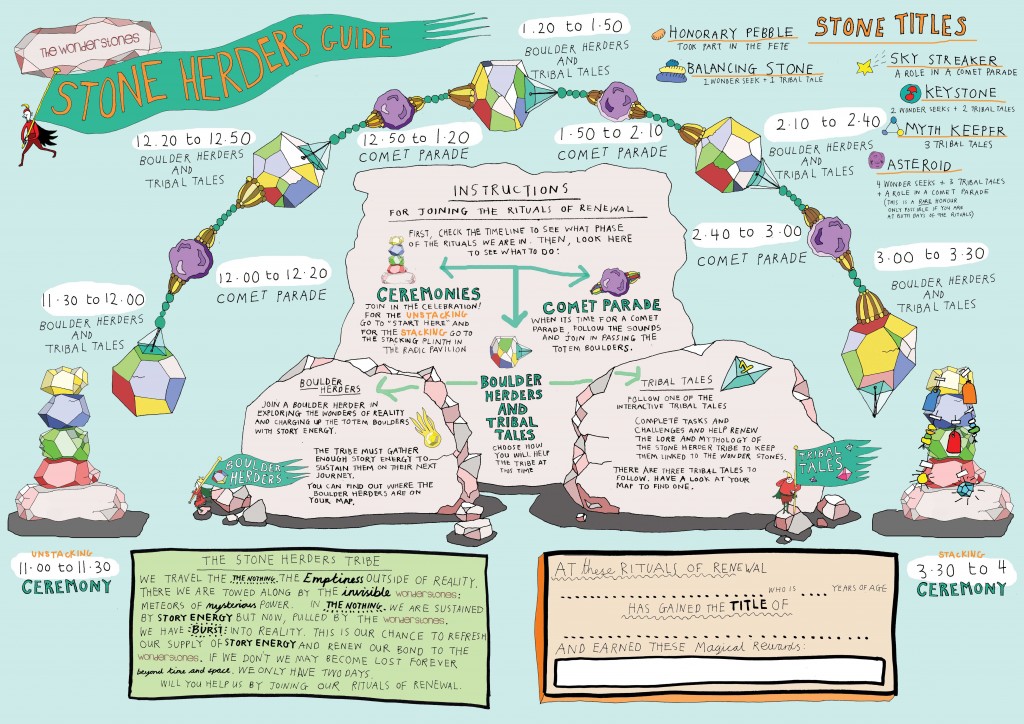 The Wonderstones
STONE HERDERS GUIDE
1.20 to 1.50
BOULDER HERDERS
AND
TRIBAL TALES
HONORARY PEBBLE
TOOK PART IN THE FETE
BALANCING STONE
1 WONDER SEEK + 1 TRIBAL TALE
STONE TITLES
SKY STREAKER
A ROLE IN A COMET PARADE
KEYSTONE
2 WONDER SEEKS + 2 TRIBAL TALES
MYTH KEEPER
3 TRIBAL TALES
ASTEROID
4 WONDER SEEKS + 3 TRIBAL TALES
+ A ROLE IN A COMET PARADE
(THIS IS A RARE HONOUR
ONLY POSSIBLE IF YOU ARE
AT BOTH DAYS OF THE RITUALS)
12.20 to 12.50
BOULDER HERDERS
AND
TRIBAL TALES
12.50 to 1.20
COMET PARADE
1.50 to 2.10
COMET PARADE
2.10 to 2.40
BOULDER HERDERS
AND
TRIBAL TALES
12.00 to 12.20
COMET PARADE
2.40 to 3.00
COMET PARADE
11.30 to 12.00
BOULDER HERDERS
AND
TRIBAL TALES
3.00 to 3.30
BOULDER HERDERS
AND
TRIBAL TALES
INSTRUCTIONS
FOR JOINING THE RITUALS OF RENEWAL
FIRST, CHECK THE TIMELINE TO SEE WHAT PHASE
OF THE RITUALS WE ARE IN. THEN, LOOK HERE
TO SEE WHAT TO DO:
CEREMONIES
JOIN IN THE CELEBRATION!
FOR THE UNSTACKING
GO TO "START HERE" AND
FOR THE STACKING GO TO
THE STACKING PLINTH IN
THE RADIC PAVILION
COMET PARADE
WHEN ITS TIME FOR A COMET
PARADE, FOLLOW THE SOUNDS
AND JOIN IN PASSING THE
TOTEM BOULDERS.
BOULDER
HERDERS
AND
TRIBAL
TALES
CHOOSE HOW
YOU WILL HELP
THE TRIBE AT
THIS TIME
BOULDER
HERDERS
JOIN A BOULDER HERDER IN
EXPLORING THE WONDERS OF REALITY
AND CHARGING UP THE TOTEM BOULDERS
WITH STORY ENERGY.
THE TRIBE MUST GATHER
ENOUGH STORY ENERGY TO
SUSTAIN THEM ON THEIR NEXT
JOURNEY.
YOU CAN FIND OUT WHERE THE
BOULDER HERDERS ARE ON
YOUR MAP.
BOULDER
HERDERS
TRIBAL TALES
FOLLOW ONE OF THE
INTERACTIVE TRIBAL TALES
COMPLETE TASKS AND
CHALLENGES AND HELP RENEW
THE LORE AND MYTHOLOGY OF
THE STONE HERDER TRIBE TO KEEP
THEM LINKED TO THE WONDER STONES.
THERE ARE THREE TRIBAL TALES TO
FOLLOW. HAVE A LOOK AT YOUR
MAP TO FIND ONE.
TRIBAL
TALES
UNSTACKING
11.00 to 11.30
CEREMONY
THE STONE HERDERS TRIBE
WE TRAVEL THE THE NOTHING. THE Emptiness OUTSIDE OF REALITY.
THERE WE ARE TOWED ALONG BY THE invisible wonderstones:
METEORS OF mysterious POWER. IN THE NOTHING. WE ARE SUSTAINED
BY STORY ENERGY BUT NOW, PULLED BY THE wonderstones.
WE HAVE BURST INTO REALITY. THIS IS OUR CHANCE TO REFRESH
OUR SUPPLY OF STORY ENERGY AND RENEW OUR BOND TO THE
wonderstones. IF WE DON'T WE MAY BECOME LOST FOREVER
beyond time and space. WE ONLY HAVE TWO DAYS.
WILL YOU HELP US BY JOINING OUR RITUALS OF RENEWAL.
AT these RITUALS OF RENEWAL
WHO IS YEARS OF AGE
HAS GAINED THE TITLE OF
AND EARNED THESE Magical Rewards:
STACKING
3.30 to 4
CEREMONY